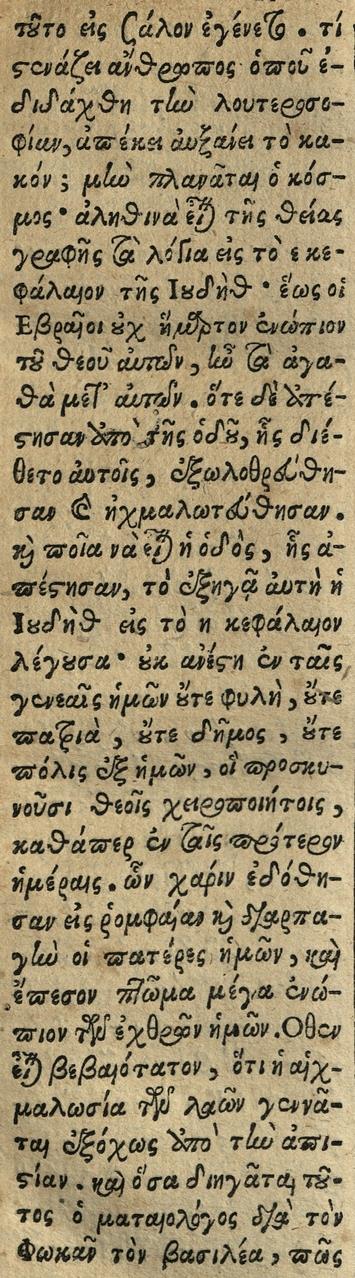 τοῦτο εἰς ζάλον ἐγένετο. τί
στενάζει ἄνθρωπος ὁποῦ ἐ-
διδάχθη τὴν λουτεροσο-
φίαν, ἀπέκει ἀυξαίνει τὸ κα-
κόν; μὴν πλανᾶται ὁ κόσ-
μος· ἀληθινὰ εἶναι τῆς θείας
γραφῆς τὰ λόγια εἰς τὸ ε κε-
φάλαιον τῆς Ιουδὴθ· ἕως οἱ
Εβραῖοι οὐχ ἥμαρτον ἐνώπιον
τοῦ θεοῦ ἀυτῶν, ἦν τὰ ἀγα-
θὰ μετ' ἀυτῶν. ὅτε δὲ ἀπέ-
στησαν ἀπὸ τῆς ὁδοῦ, ἧς διέ-
θετο ἀυτοῖς, ἐξωλοθρεύθη-
σαν καὶ ἠχμαλωτεύθησαν.
καὶ ποῖα νὰ εἶναι ἡ ὁδὸς, ἧς ἀ-
πέστησαν, τὸ ἐξηγᾷ ἀυτὴ ἡ
Ιουδὴθ εἰς τὸ η κεφάλαιον
λέγουσα· οὐκ ἀνέστη ἐν ταῖς
γενεαῖς ἡμῶν οὔτε φυλὴ, οὔτε
πατριὰ, οὔτε δῆμος, οὔτε
πόλις ἐξ ἡμῶν, οἳ προσκυ-
νοῦσι θεοῖς χειροποιήτοις,
καθάπερ ἐν ταῖς πρότερον
ἡμέραις. ὧν χάριν ἐδόθη-
σαν εἰς ῥομφαίαν καὶ διαρπα-
γὴν οἱ πατέρες ἡμῶν, καὶ
ἔπεσον πτῶμα μέγα ἐνώ-
πιον τῶν ἐχθρῶν ἡμῶν. Οθεν
εἶναι βεβαιότατον, ὅτι ἡ αἰχ-
μαλωσία τῶν λαῶν γεννᾶ-
ται ἐξόχως ἀπὸ τὴν ἀπι-
στίαν. καὶ ὅσα διηγᾶται τοῦ-
τος ὁ ματαιολόγος διὰ τὸν
Φωκᾶν τὸν βασιλέα, πῶς